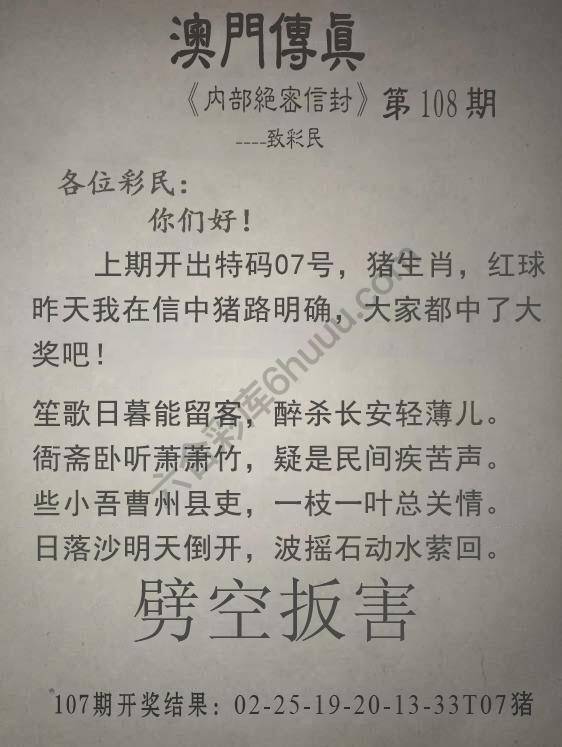 澳門傳真
《内部絕密信封》第108期
----致彩民
各位彩民：
你们好！
上期开出特码07号，猪生肖，红球
昨天我在信中猪路明确，大家都中了大
奖吧！
笙歌日暮能留客，醉杀长安轻薄儿。
衙斋卧听萧萧竹，疑是民间疾苦声。
些小吾曹州县吏，一枝一叶总关情。
日落沙明天倒开，波摇石动水萦回。
劈空扳害
107期开奖结果：02-25-19-20-13-33T07猪
六合彩库6huuu.com